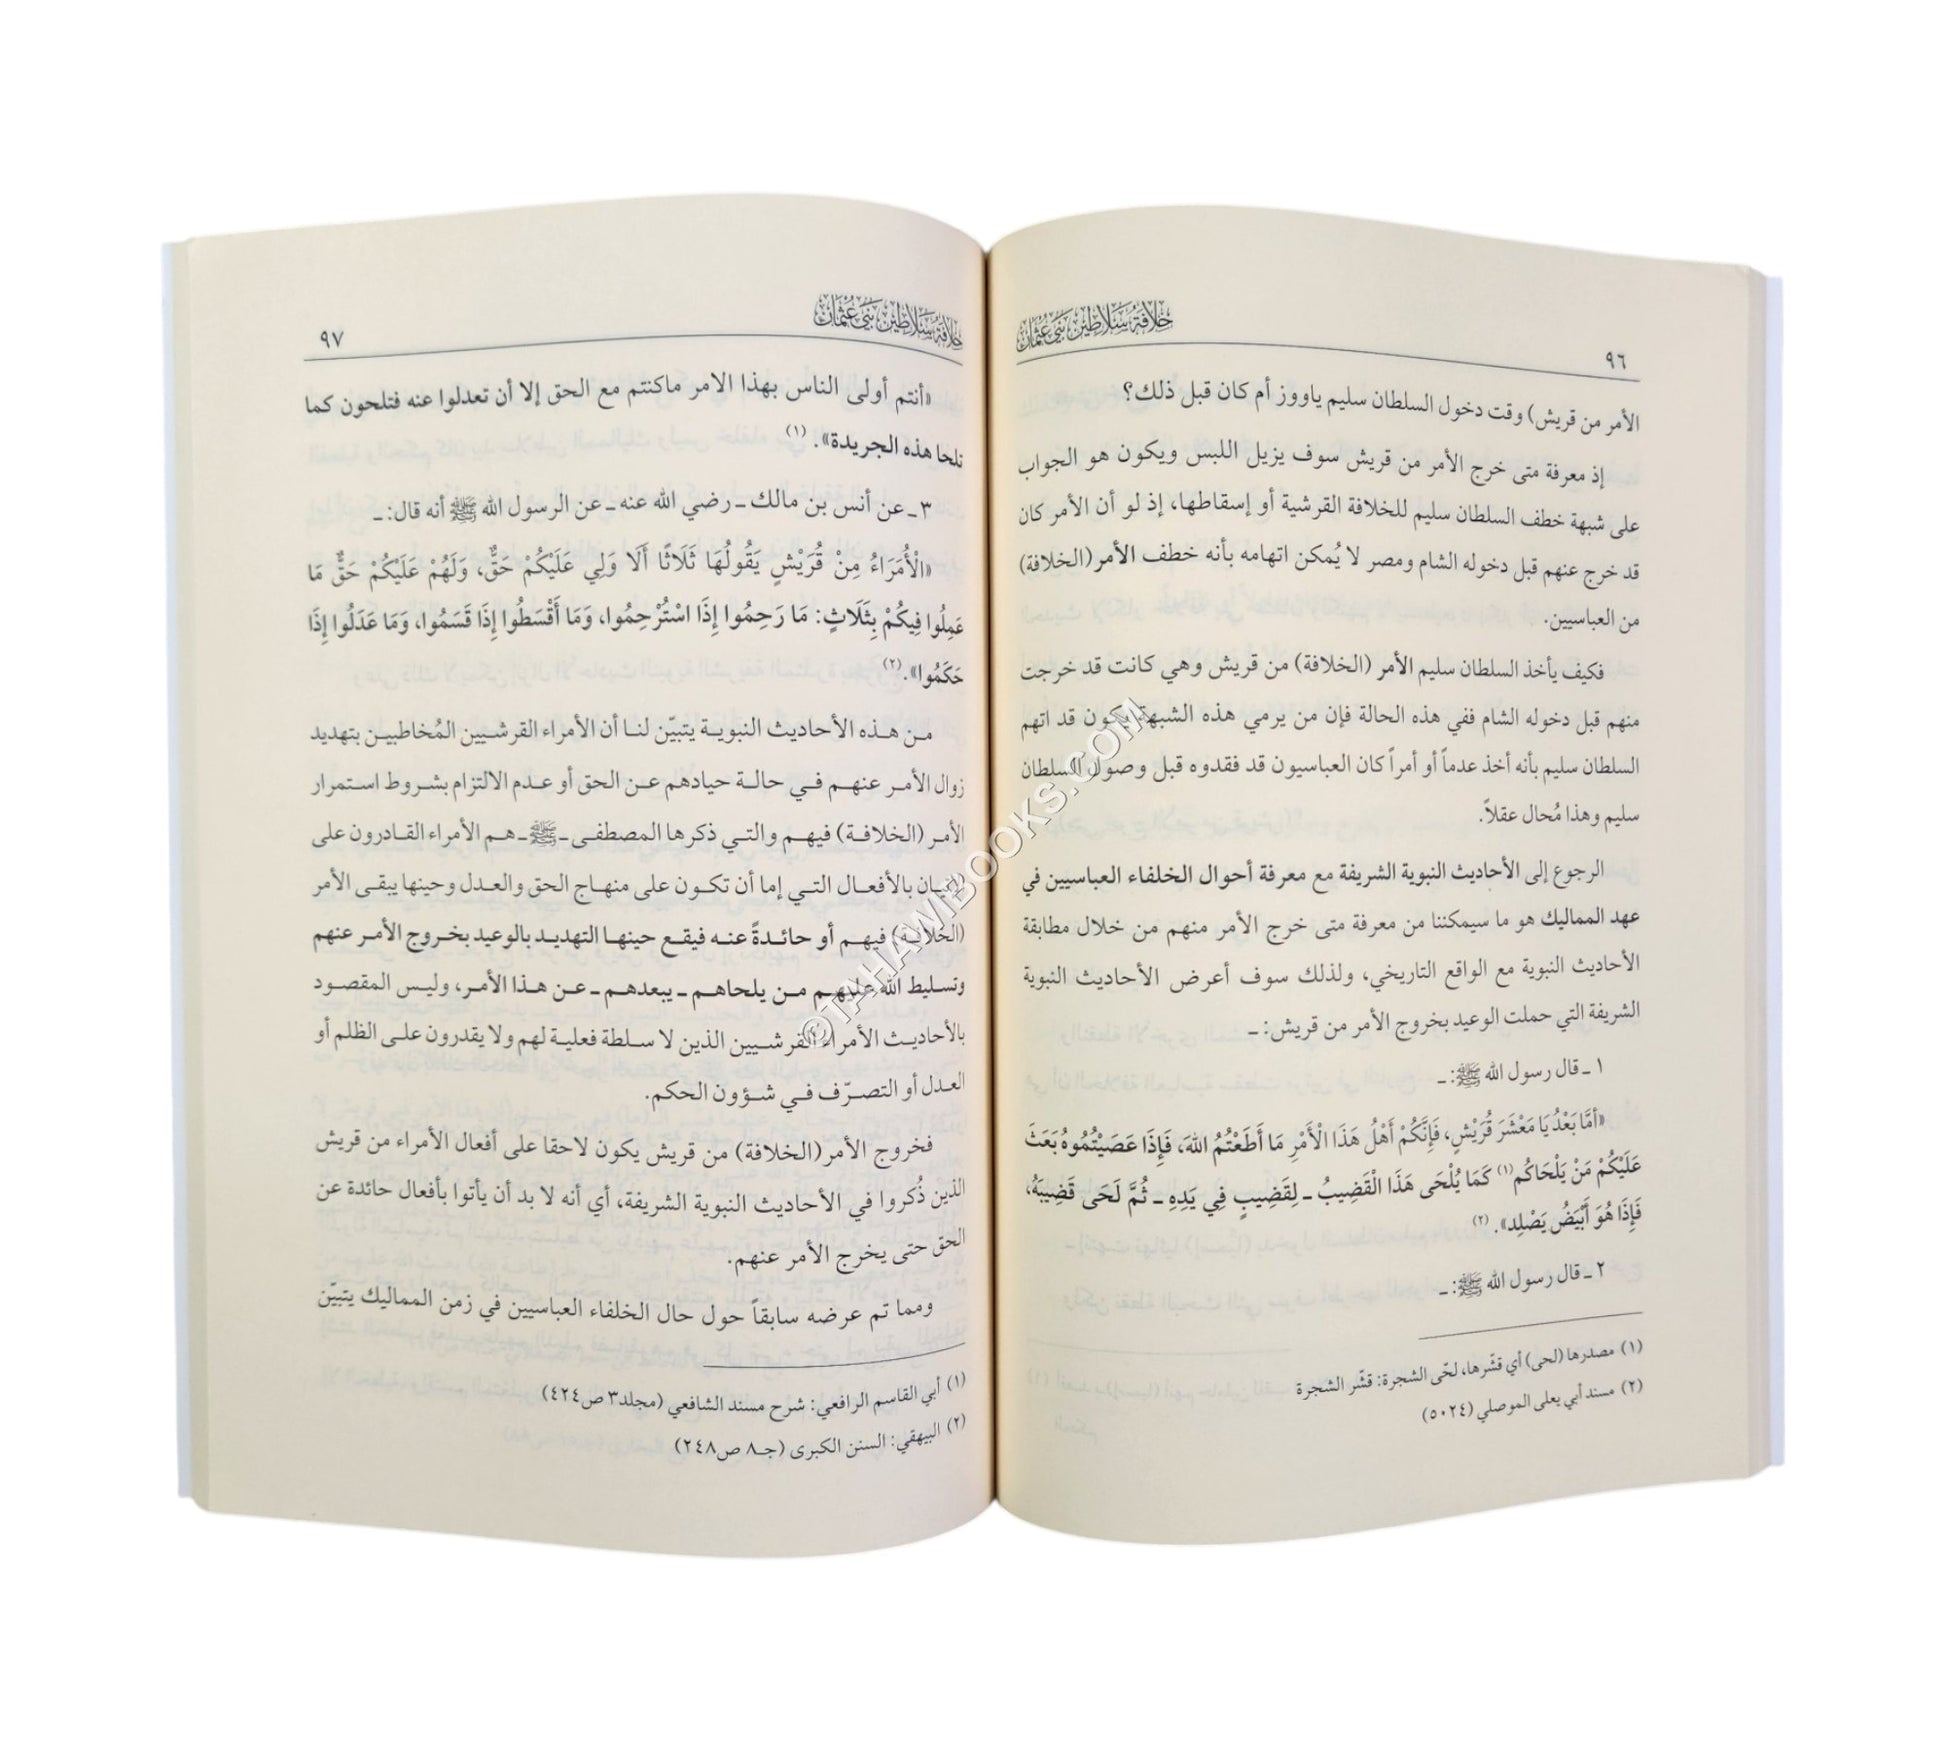 خلافة سلاطين بني عثمان
٩٦
الأمر من قريش) وقت دخول السلطان سليم ياووز أم كان قبل ذلك؟
إذ معرفة متى خرج الأمر من قريش سوف يزيل اللبس ويكون هو الجواب
على شبهة خطف السلطان سليم للخلافة القرشية أو إسقاطها، إذ لو أن الأمر كان
قد خرج عنهم قبل دخوله الشام ومصر لا يُمكن اتهامه بأنه خطف الأمر (الخلافة)
من العباسيين.
فكيف يأخذ السلطان سليم الأمر (الخلافة) من قريش وهي كانت قد خرجت
منهم قبل دخوله الشام ففي هذه الحالة فإن من يرمي هذه الشبهة يكون قد اتهم
السلطان سليم بأنه أخذ عدماً أو أمراً كان العباسيون قد فقدوه قبل وصول السلطان
سليم وهذا مُحال عقلاً.
الرجوع إلى الأحاديث النبوية الشريفة مع معرفة أحوال الخلفاء العباسيين في
عهد المماليك هو ما سيمكننا من معرفة متى خرج الأمر منهم من خلال مطابقة
الأحاديث النبوية مع الواقع التاريخي، ولذلك سوف أعرض الأحاديث النبوية
الشريفة التي حملت الوعيد بخروج الأمر من قريش: ـ
١ ـ قال رسول الله ﷺ: ـ
«أمَّا بَعْدُ يَا مَعْشَرَ قُرَيْشٍ، فَإِنَّكُمْ أَهْلُ هَذَا الْأَمْرِ مَا أَطَعْتُمُ اللهَ، فَإِذَا عَصَيْتُمُوهُ بَعَثَ
عَلَيْكُمْ مَنْ يَلْحَاكُم(١) كَمَا يُلْحَى هَذَا الْقَضِيبُ ـ لِقَضِيبٍ فِي يَدِهِ ـ ثُمَّ لَحَى قَضِيبَهُ،
فَإِذَا هُوَ أَبْيَضُ يَصْلِد». (٢)
٢ ـ قال رسول الله ﷺ: ـ
(١) مصدرها (لحى) أي قشّرها، لحّى الشجرة: قشّر الشجرة
(٢) مسند أبي يعلى الموصلي (٥٠٢٤)
خلافة سلاطين بني عثمان
٩٧
«أنتم أولى الناس بهذا الامر ماكنتم مع الحق إلا أن تعدلوا عنه فتلحون كما
تلحا هذه الجريدة». (١)
٣ ـ عن أنس بن مالك ـ رضي الله عنه ـ عن الرسول الله ﷺ أنه قال: ـ
«الْأُمَرَاءُ مِنْ قُرَيْشٍ يَقُولُهَا ثَلَاثًا أَلَا وَلِي عَلَيْكُمْ حَقٌّ، وَلَهُمْ عَلَيْكُمْ حَقٌّ مَا
عَمِلُوا فِيكُمْ بِثَلَاثٍ: مَا رَحِمُوا إِذَا اسْتُرْحِمُوا، وَمَا أَقْسَطُوا إِذَا قَسَمُوا، وَمَا عَدَلُوا إِذَا
حَكَمُوا». (٢)
من هذه الأحاديث النبوية يتبيّن لنا أن الأمراء القرشيين المُخاطبين بتهديد
زوال الأمر عنهم في حالة حيادهم عن الحق أو عدم الالتزام بشروط استمرار
الأمر (الخلافة) فيهم والتي ذكرها المصطفى ـ ﷺ ـ هم الأمراء القادرون على
الإتيان بالأفعال التي إما أن تكون على منهاج الحق والعدل وحينها يبقى الأمر
(الخلافة) فيهم أو حائدةً عنه فيقع حينها التهديد بالوعيد بخروج الأمر عنهم
وتسليط الله عليهم من يلحاهم ـ يبعدهم ـ عن هذا الأمر، وليس المقصود
بالأحاديث الأمراء القرشيين الذين لا سلطة فعلية لهم ولا يقدرون على الظلم أو
العدل أو التصرّف في شؤون الحكم.
فخروج الأمر (الخلافة) من قريش يكون لاحقا على أفعال الأمراء من قريش
الذين ذُكروا في الأحاديث النبوية الشريفة، أي أنه لا بد أن يأتوا بأفعال حائدة عن
الحق حتى يخرج الأمر عنهم.
ومما تم عرضه سابقاً حول حال الخلفاء العباسيين في زمن المماليك يتبيّن
(١) أبي القاسم الرافعي: شرح مسند الشافعي (مجلد٣ ص٤٢٤)
(٢) البيهقي: السنن الكبرى (جـ٨ ص٢٤٨)
©TAHAWIBOOKS.COM